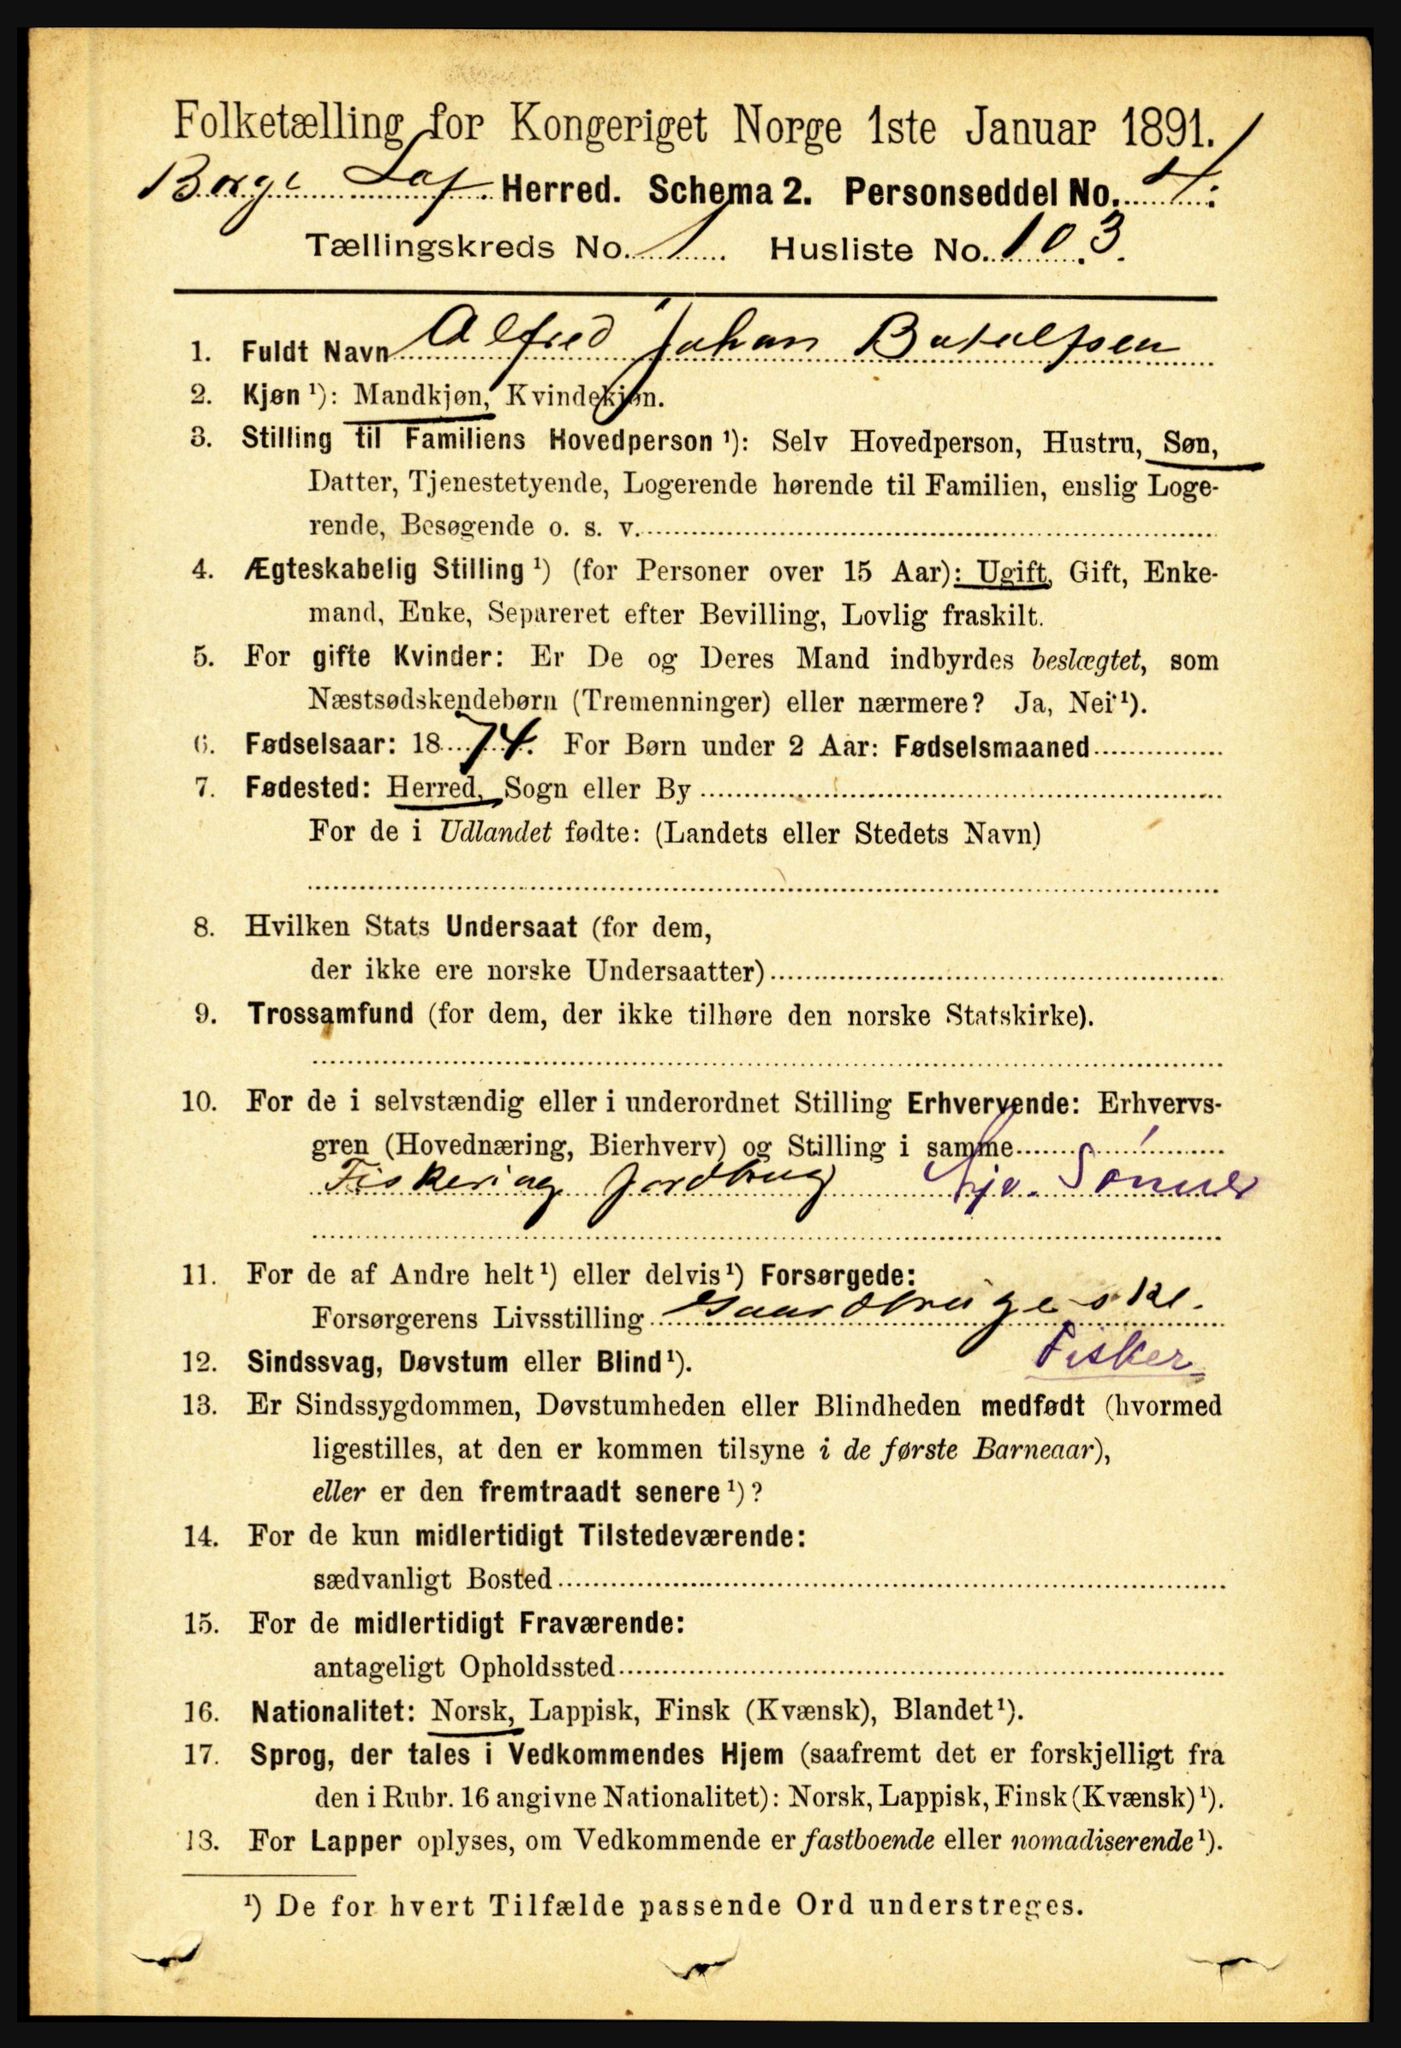 Folketælling for Kongeriget Norge 1ste Januar 1891.
Borge Lof. Herred. Schema 2. Personseddel No. 4:
Tællingskreds No. 1 Husliste No. 103.
1. Fuldt Navn Alfred Johan Botolfsen
2. Kjøn ¹): Mandkjøn, Kvindekjøn.
3. Stilling til Familiens Hovedperson ¹): Selv Hovedperson, Hustru, Søn,
Datter, Tjenestetyende, Logerende hørende til Familien, enslig Loge-
rende, Besøgende o. s. v.
4. Ægteskabelig Stilling ¹) (for Personer over 15 Aar): Ugift, Gift, Enke-
mand, Enke, Separeret efter Bevilling, Lovlig fraskilt.
5. For gifte Kvinder: Er De og Deres Mand indbyrdes beslægtet, som
Næstsødskendebørn (Tremenninger) eller nærmere? Ja, Nei ¹).
6. Fødselsaar: 1874. For Børn under 2 Aar: Fødselsmaaned
7. Fødested: Herred, Sogn eller By
For de i Udlandet fødte: (Landets eller Stedets Navn)
8. Hvilken Stats Undersaat (for dem,
der ikke ere norske Undersaatter)
9. Trossamfund (for dem, der ikke tilhøre den norske Statskirke).
10. For de i selvstændig eller i underordnet Stilling Erhvervende: Erhvervs-
gren (Hovednæring, Bierhverv) og Stilling i samme
Fiskeri og jordbrug Hje. Sønner
11. For de af Andre helt ¹) eller delvis ¹) Forsørgede:
Forsørgerens Livsstilling Gaardbruger
Fisker
12. Sindssvag, Døvstum eller Blind ¹).
13. Er Sindssygdommen, Døvstumheden eller Blindheden medfødt (hvormed
ligestilles, at den er kommen tilsyne i de første Barneaar),
eller er den fremtraadt senere ¹)?
14. For de kun midlertidigt Tilstedeværende:
sædvanligt Bosted
15. For de midlertidigt Fraværende:
antageligt Opholdssted
16. Nationalitet: Norsk, Lappisk, Finsk (Kvænsk), Blandet ¹).
17. Sprog, der tales i Vedkommendes Hjem (saafremt det er forskjelligt fra
den i Rubr. 16 angivne Nationalitet): Norsk, Lappisk, Finsk (Kvænsk) ¹).
13. For Lapper oplyses, om Vedkommende er fastboende eller nomadiserende ¹).
¹) De for hvert Tilfælde passende Ord understreges.